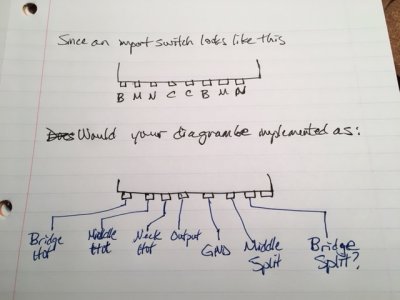 Since an import switch looks like this
B M N C C B M N
Would your diagram be implemented as:
Bridge Hot
Middle Hot
Neck Hot
Output
GND
Middle Split
Bridge Split?